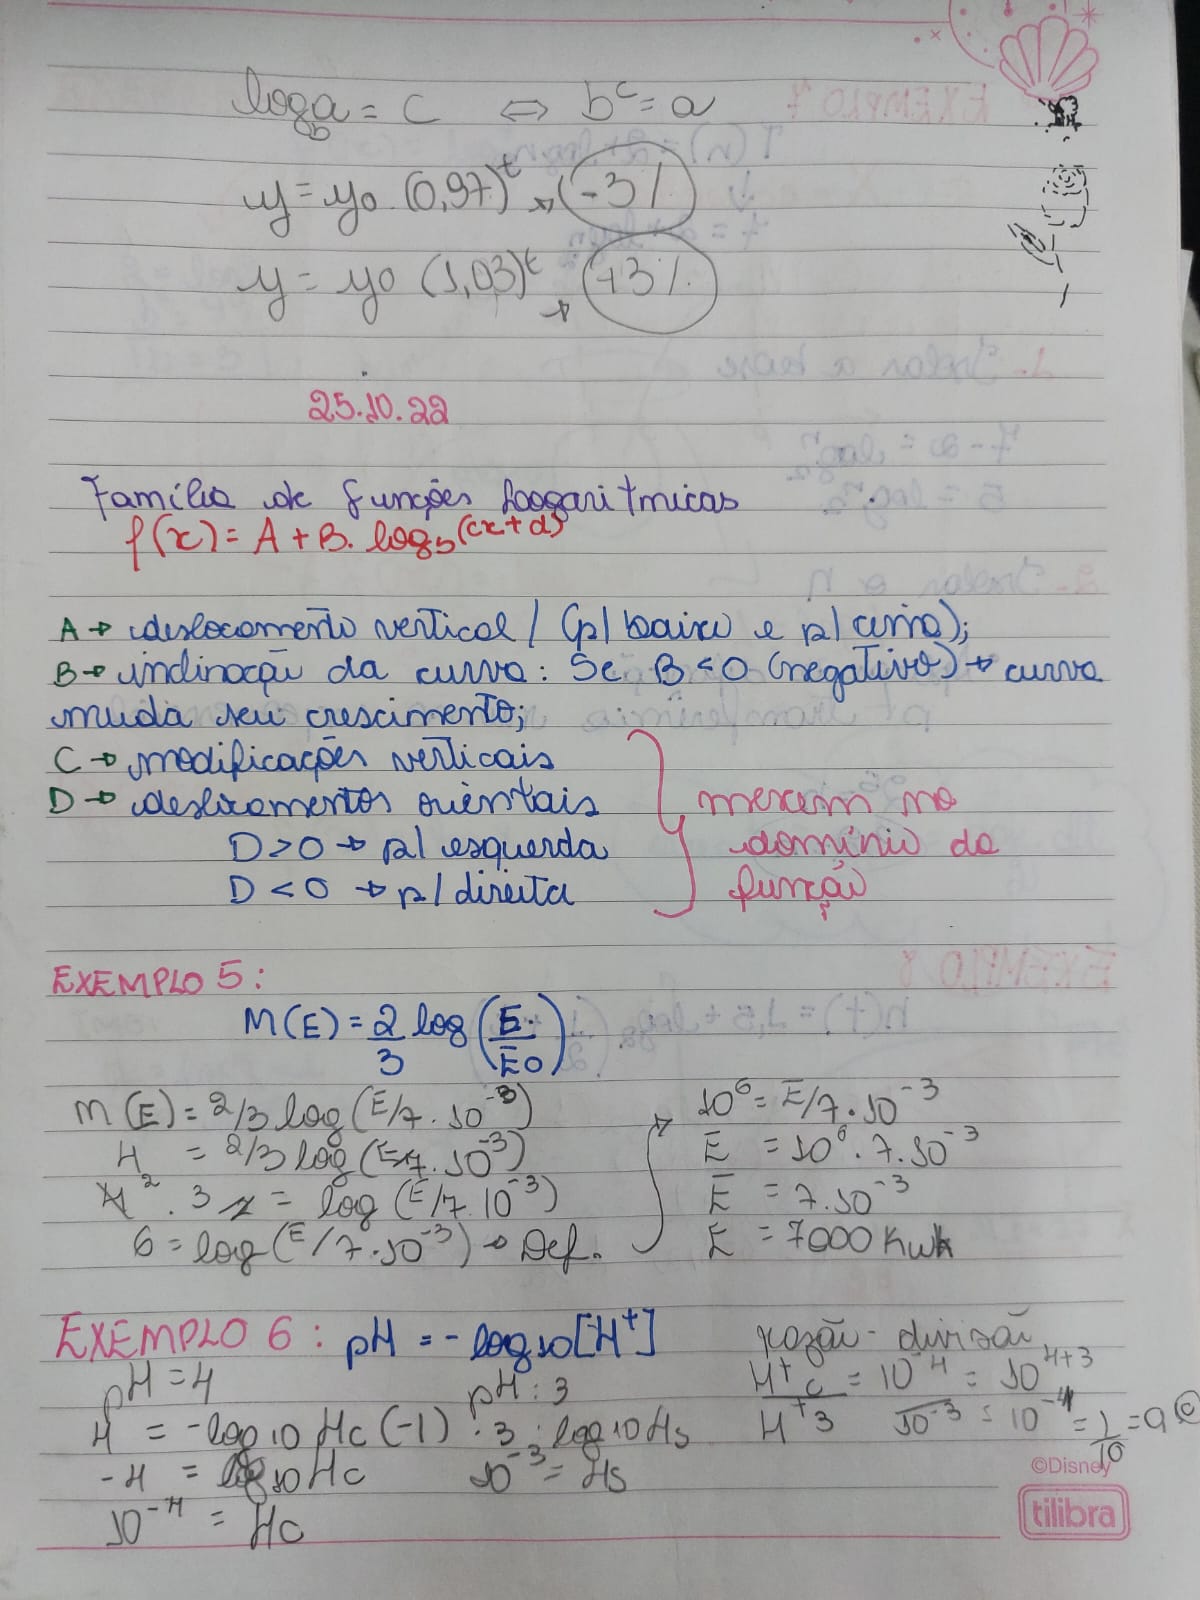 log_b a = c ⇔ b^c = a
y = y0 . (0,97)^t → (-3%)
y = y0 (1,03)^t → +3%
25.10.22
Família de funções Loogaritmicas
f(x) = A + B. log_b (cx+d)
A → deslocamento vertical / (p/ baixo e p/ cima);
B → inclinação da curva: Se B < 0 (negativo) → curva
muda seu crescimento;
C → modificações verticais
D → deslocamentos orientais
D > 0 → p/ esquerda
D < 0 → p/ direita
mexem no
domínio da
função
EXEMPLO 5:
M(E) = 2/3 log (E/E0)
M(E) = 2/3 log (E/7 . 10^-3)
4 = 2/3 log (E/7. 10^-3)
4^2 . 3/2 = log (E/7.10^-3)
6 = log (E/7.10^-3) → Def.
10^6 = E/7.10^-3
E = 10^6 . 7.10^-3
E = 7.10^-3
E = 7000 Kwh
EXEMPLO 6: pH = - log10 [H+]
pH = 4
4 = -log10 Hc (-1)
-4 = log10 Hc
10^-4 = Hc
pH: 3
. 3 . log10 Hs
10^-3 = Hs
razão - divisão
H+c = 10^-4 = 10^4+3
H+3 10^-3 = 10^-4 = 1/10 = a
©Disney
tilibra